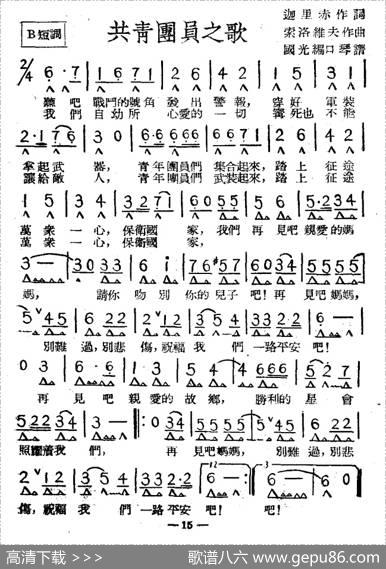 B短調
共青團員之歌
迦里赤作詞
索洛維夫作曲
國光編口琴譜
2/4 6·7 1671 26 42 15 31
聽吧 戰鬥的號角 發出 警報, 穿好 軍裝
我們 自幼所 心愛的 一切 寧死也 不能
2·176 30 6·6666 6·671 42 31
拿起武 器, 青年團員們 集合起來, 踏上 征途
讓給敵 人, 青年團員們 武裝起來, 踏上 征途
15 34 3271 6055 56 5·234
萬衆 一心, 保衛國 家, 我們 再見吧 親愛的媽
萬衆 一心, 保衛國 家,
3— 3033 6i 76#57 6034 5555
媽, 請你 吻別 你的 兒子 吧! 再見吧 媽媽,
5445 6122 24 34 332·2 6—
別難 過, 別悲 傷, 祝福 我 們 一路平安 吧!
03 6·6 13 54 4666 527
再 見 吧 親愛 的 故 鄉, 勝利的 星 會
52234 3— :034 5555 5445
照耀着我 們, 再 見吧媽媽, 別難 過, 別悲
212 34 332·2 6— 6— 60
傷, 祝福 我 們 一路平安 吧! 吧!
— 15 —
高清下载 >>>
歌谱八六 www.gepu86.com